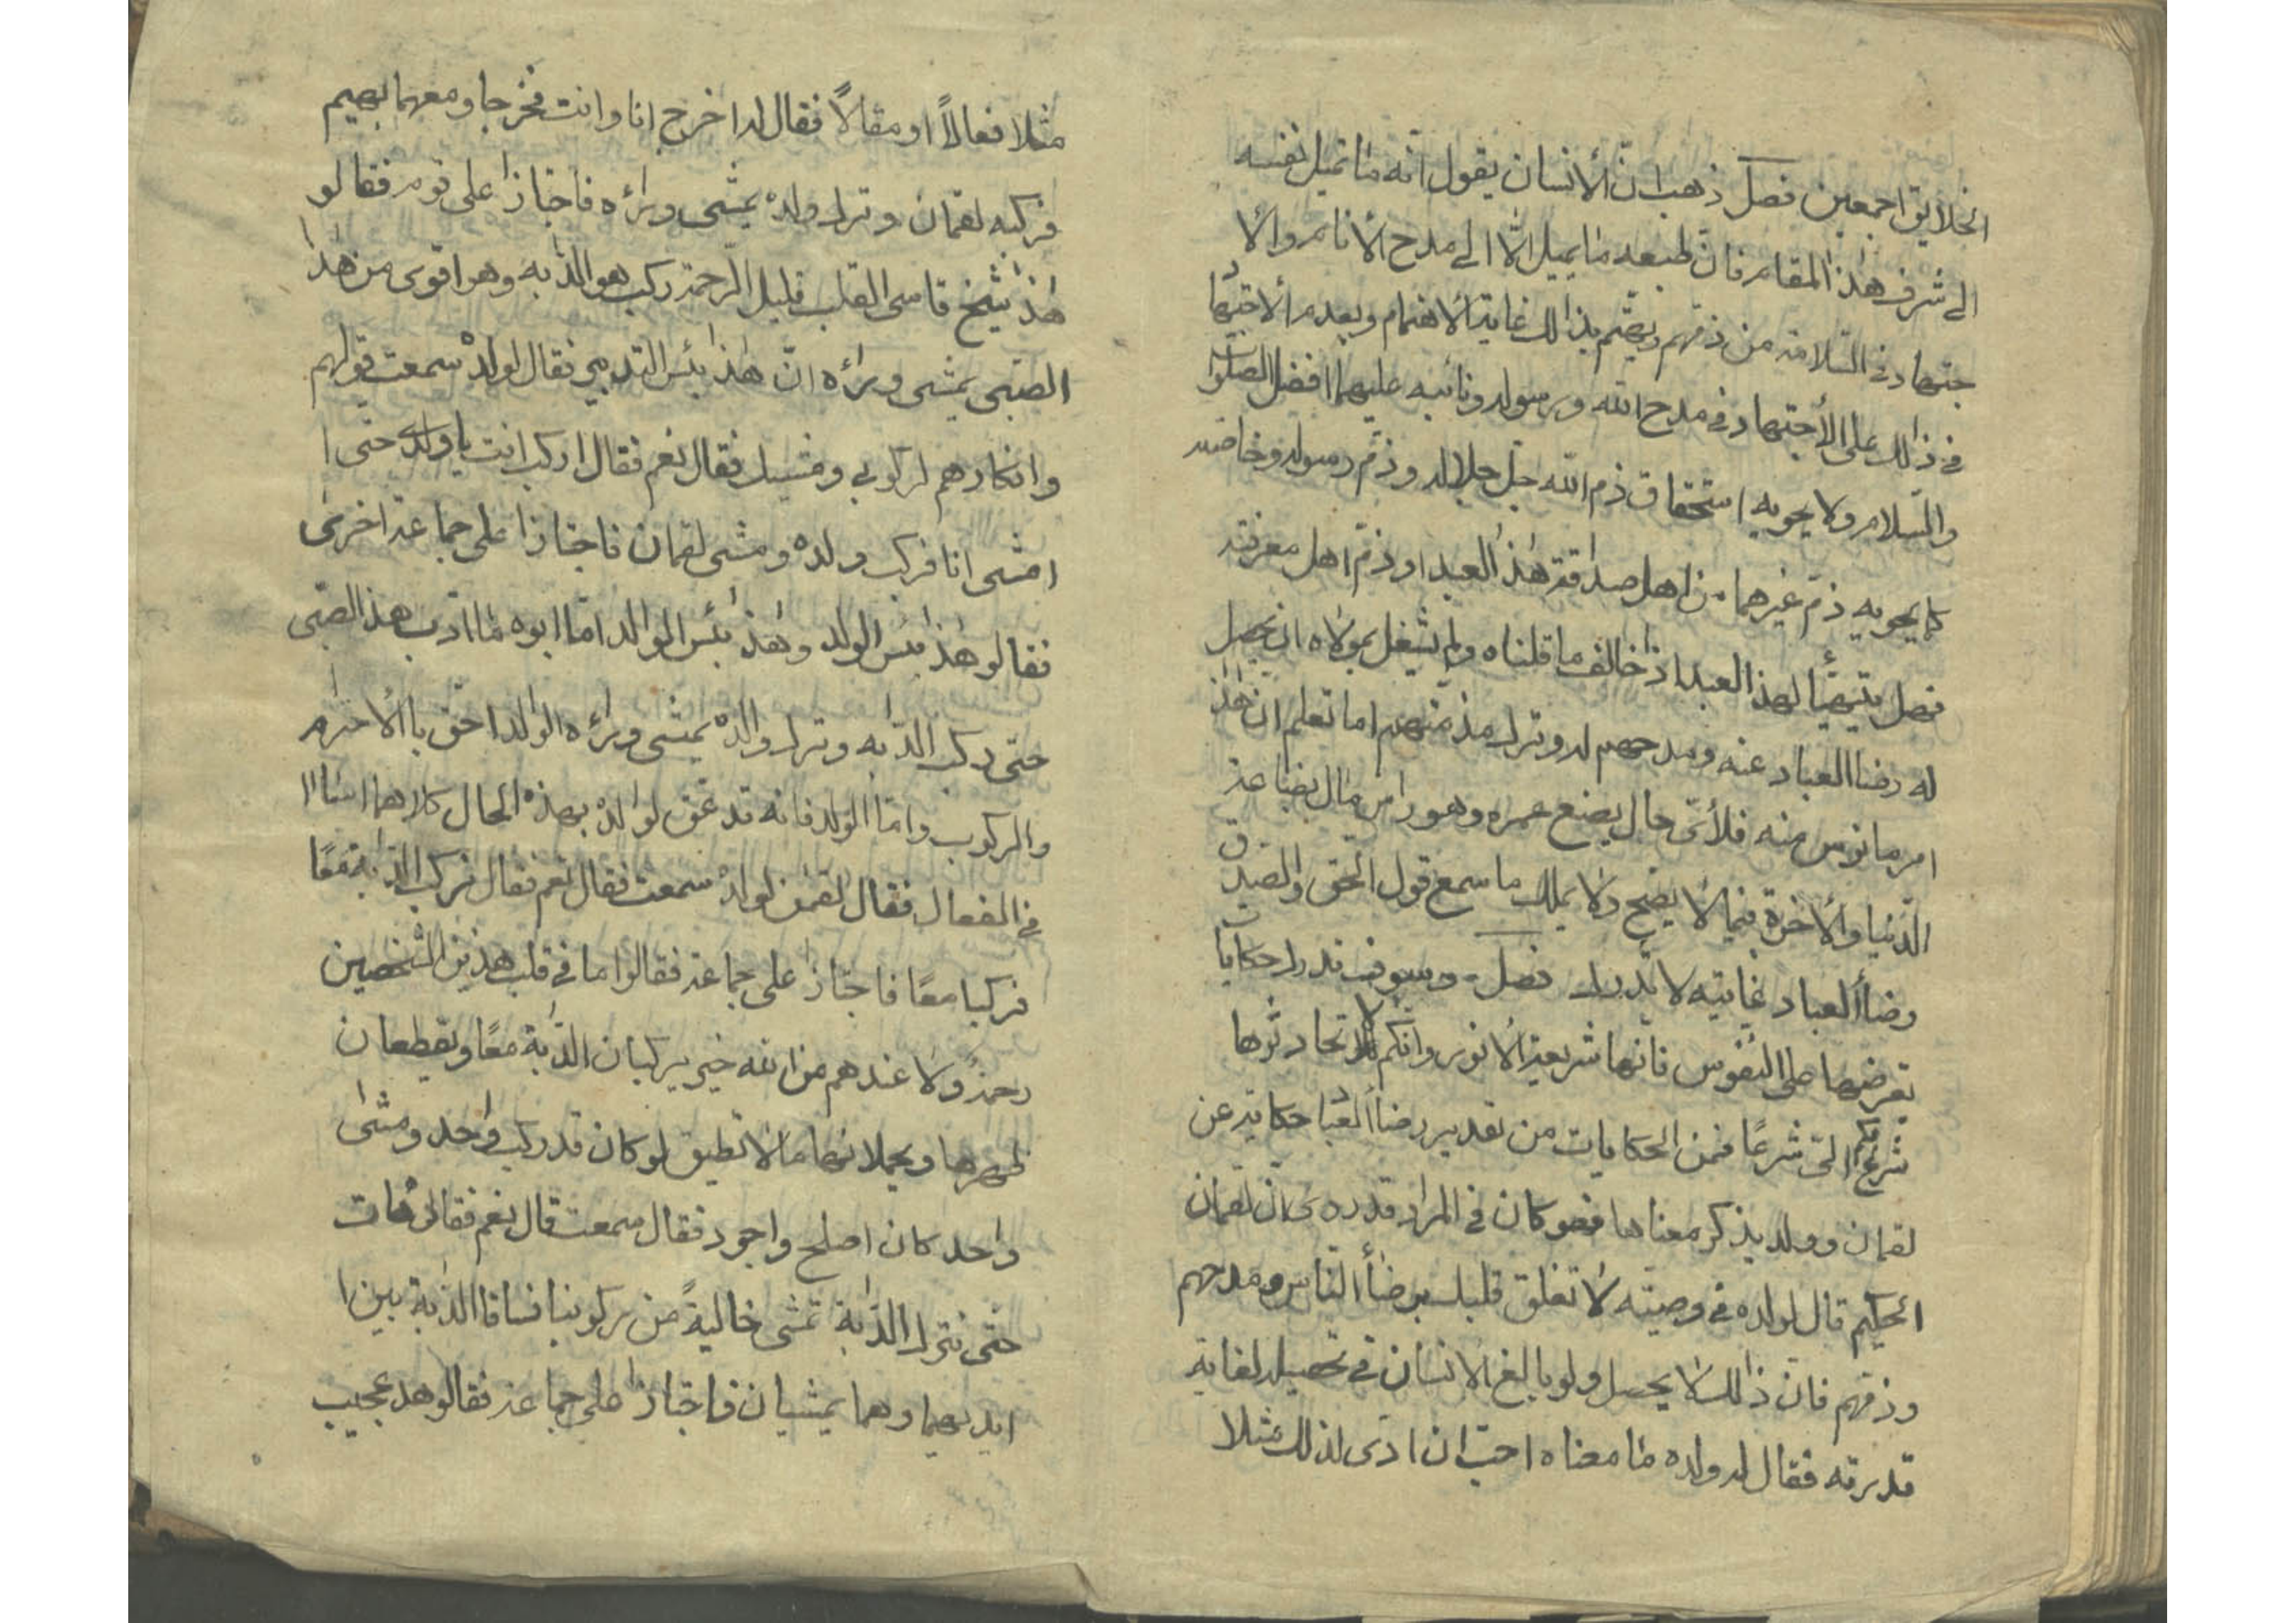 الخلايق اجمعين فصل ذهب ان الأنسان يقول انه ما تميل نفسه
الى شرف هذا المقام فان طبعه ما يميل الّا الى مدح الأنام والا
جتهاد في السّلامة من ذمّهم ويهتم بذالك غاية الاهتمام ويعدم الاجتهاد
في ذالك على الأجتهاد في مدح الله ورسوله ونائبيه عليهما افضل الصلوات
والسلام ولا يحويه استحقاق ذم الله جل جلاله وذمّ رسوله وخاصته
كما يحويه ذمّ غيرهما من اهل صداقة هذا العبد او ذمّ اهل معرفته
فهل يتهيّأ لهذا العبد اذ خالف ما قلناه ولم يشغل بمولاه ان يحصل
له رضاا العباد عنه ومدحهم له وترك مذمتهم اما تعلم ان هذا
امر مانوس منه فلأىّ حال يضيع عمره وهو راس مال بضاعة
الدّنيا والأخرة فيما لا يصّح ولا يملك ما سمع قول الحق والصدق
رضاأ العباد غايته لا تدرك فصل وسوف ندرك حكايات
تعرضها على النفوس فانها شريعة الانوس وانكم لا تحادثوها
شرعكم الىّ شرعًا فمن الحكايات من تعذير رضاأ العباد حكاية عن
لقمان وولد يذكر معناها فهو كان في المراد قد روى ان لقمان
الحكيم قال لولده في وصيته لا تعلق قلبك برضاأ الناس ومدحهم
وذمّهم فان ذالك لا يحصل ولو بالغ الانسان في تحصيله لغاية
قدرته فقال له ولده ما معناه احبّ ان ارى لذلك مثلا
مثلا فعالاً او مقالاً فقال له اخرج انا وانت فخرجا ومعهما بهيم
فركبه لقمان وترك ولده يمشى ورأه فاجتازا على قوم فقالو
هذا شيخ قاسى القلب قليل الرّحمة ركب هو الدابه وهو اقوى من هذا
الصّبى يمشى ورأه انّ هذا بئس التدبير فقال لولده سمعت قولهم
وانكارهم لركوبي ومشيك فقال نعم فقال اركب انت يا ولدى حتّى ا
امشى انا فركب ولده ومشى لقمان فاجتازا على جماعة اخرى
فقالو هذا بئس الولد وهذا بئس الوالد امّا ابوه ما ادّب هذ الصّبى
حتى ركب الدّابه وترك والده يمشى ورأه الوالد احق باالاحترام
والركوب وامّا الولد فانه قد عق لوالده بهذه الحال كلاهما اساا
في الفعال فقال لقمن لولده سمعت فقال نعم فقال نركب الدّابة معًا
فركبا معًا فاجتازا على جماعة فقالوا ما في قلب هذين الشخصين
رحمة ولا عندهم من الله خير يركبان الدّابة معًا ويقطعان
ظهرها ويحملانها ما لا تطيق لو كان قد ركب واحد ومشى
واحد كان اصلح واجود فقال سمعت قال نعم فقال هات
حتّى نترك الدّابة تمشى خاليةً من ركوبنا فساقا الدّابة بين ا
ايديهما وهما يمشيان فاجتازا على جماعة فقالو هذ عجيب